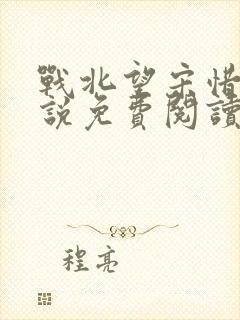 戰北望宋惜
說免費閱讀
程亮